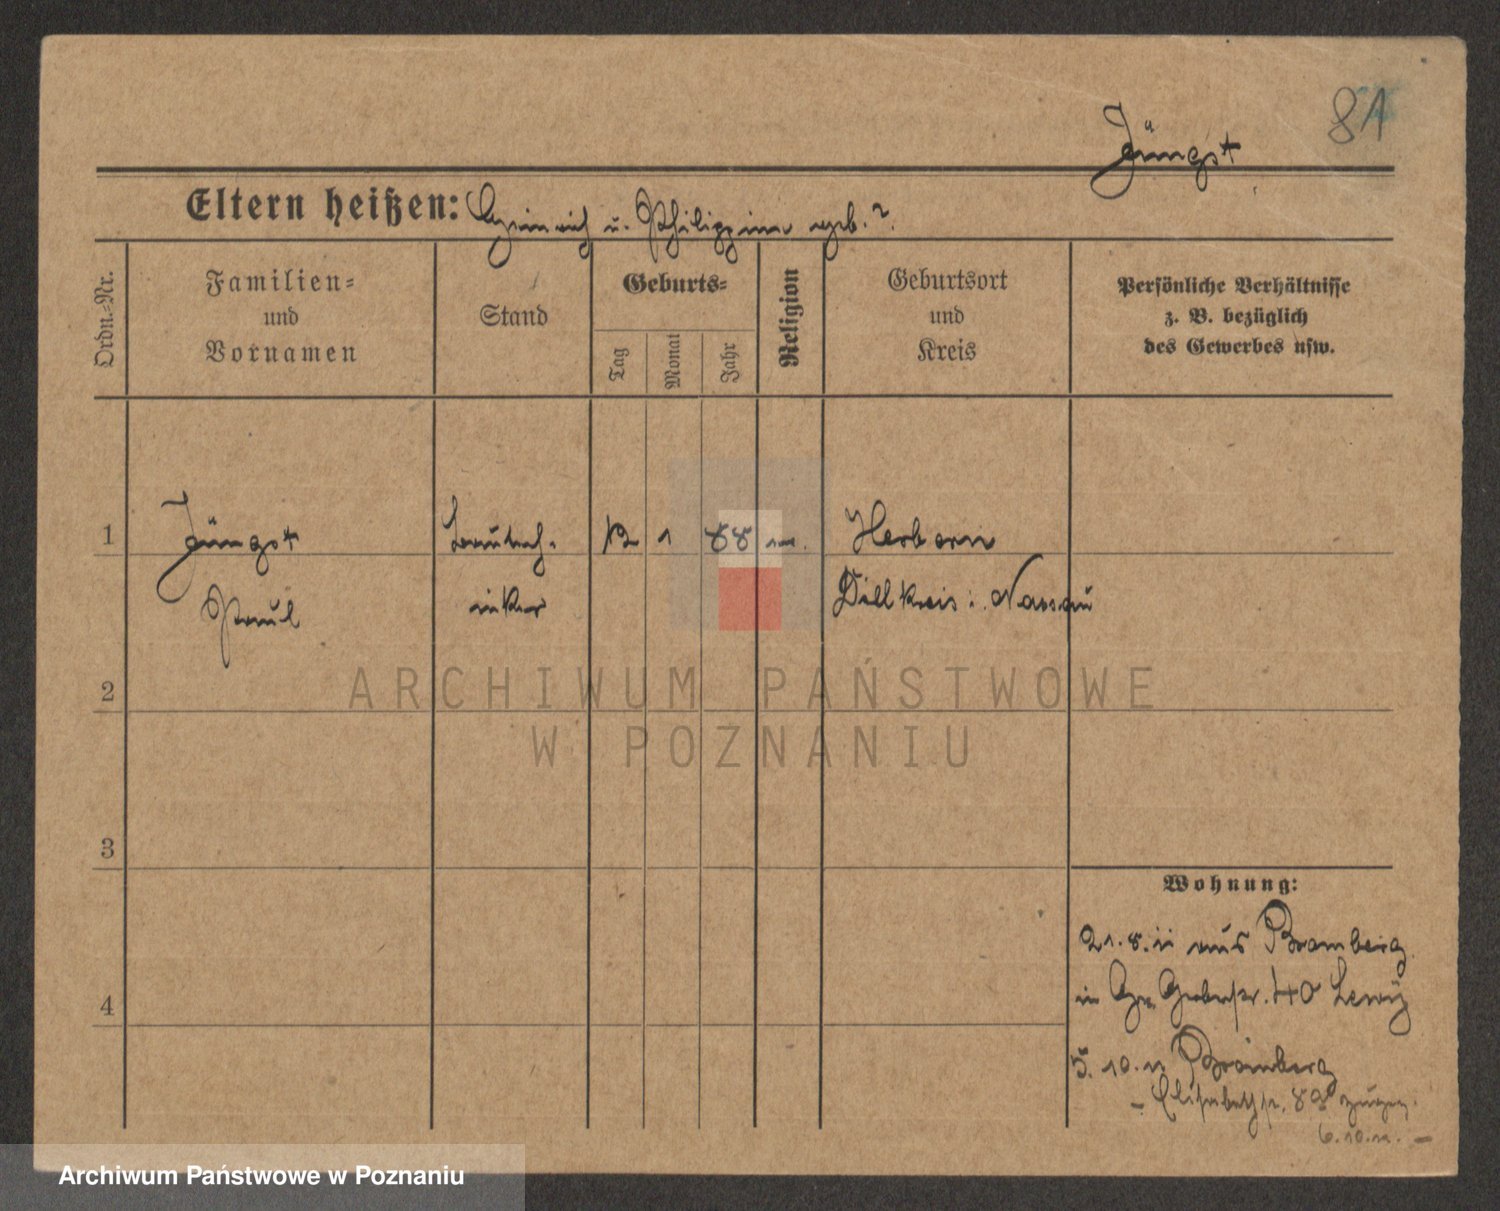 81
Jüngst
Eltern heißen: Heinrich u. Philippine geb. ?
Ordn.-Nr.
Familien-
und
Vornamen
Stand
Geburts-
Tag
Monat
Jahr
Religion
Geburtsort
und
Kreis
Persönliche Verhältnisse
z. B. bezüglich
des Gewerbes usw.
1 Jüngst 1 88 Herborn
Paul Dillkreis: Nassau
2
ARCHIWUM PAŃSTWOWE
W POZNANIU
3
Wohnung:
21.8.11 aus Bromberg
in Gr. 40 Lewy
4
5.10.11 Bromberg
- Elisabethstr.
6.10.11. -
Archiwum Państwowe w Poznaniu